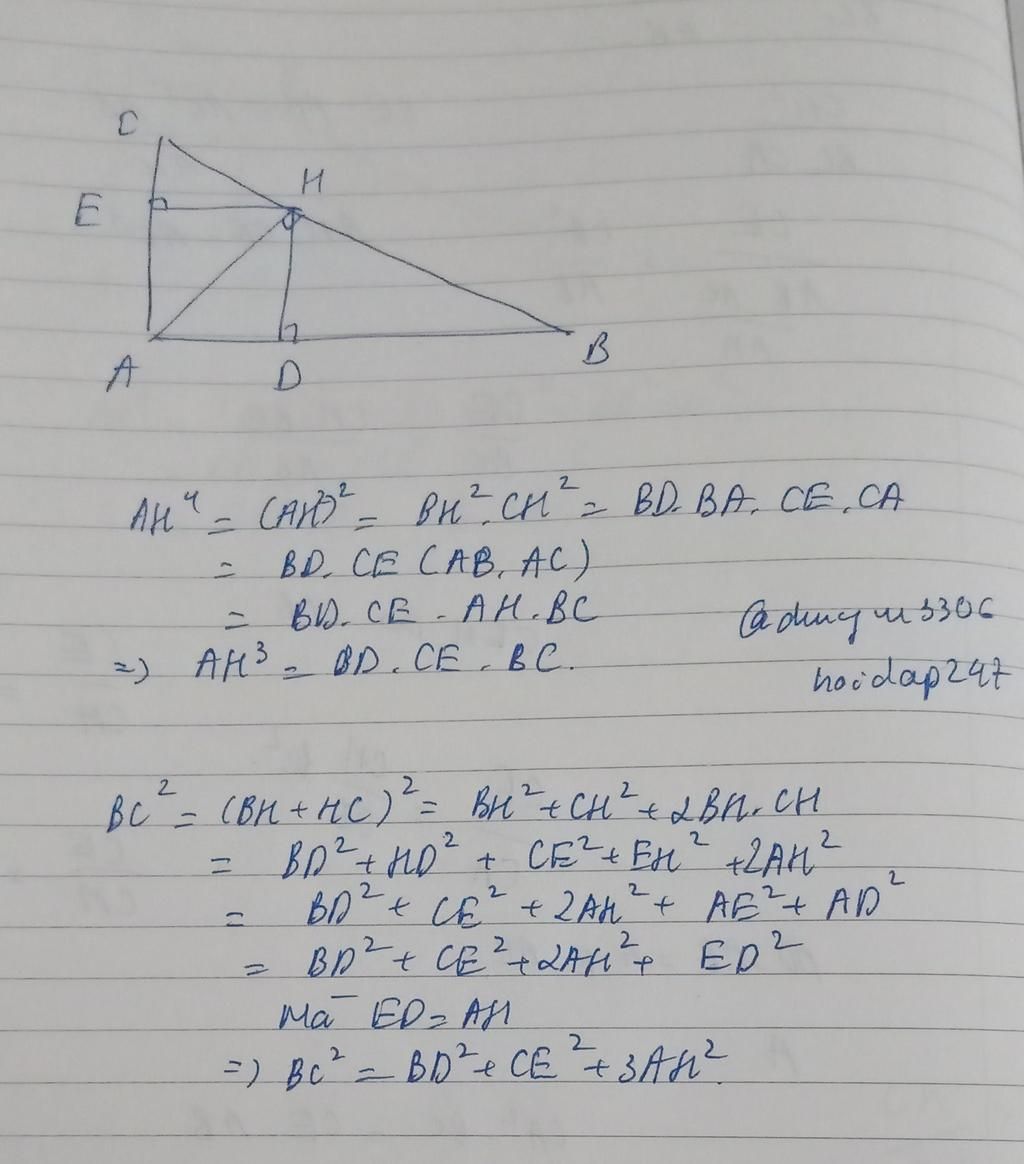 C
H
E
A
D
B
AH⁴ = (AH²)² = BH².CH² = BD.BA.CE.CA
= BD.CE (AB.AC)
= BD.CE.AH.BC
=> AH³ = BD.CE.BC.
hoidap247
BC² = (BH+HC)² = BH²+CH²+2BH.CH
= BD²+HD² + CE²+EH² +2AH²
= BD²+ CE² +2AH²+ AE²+ AD²
= BD²+ CE²+2AH²+ ED²
Mà ED=AH
=> BC² = BD²+CE²+3AH².